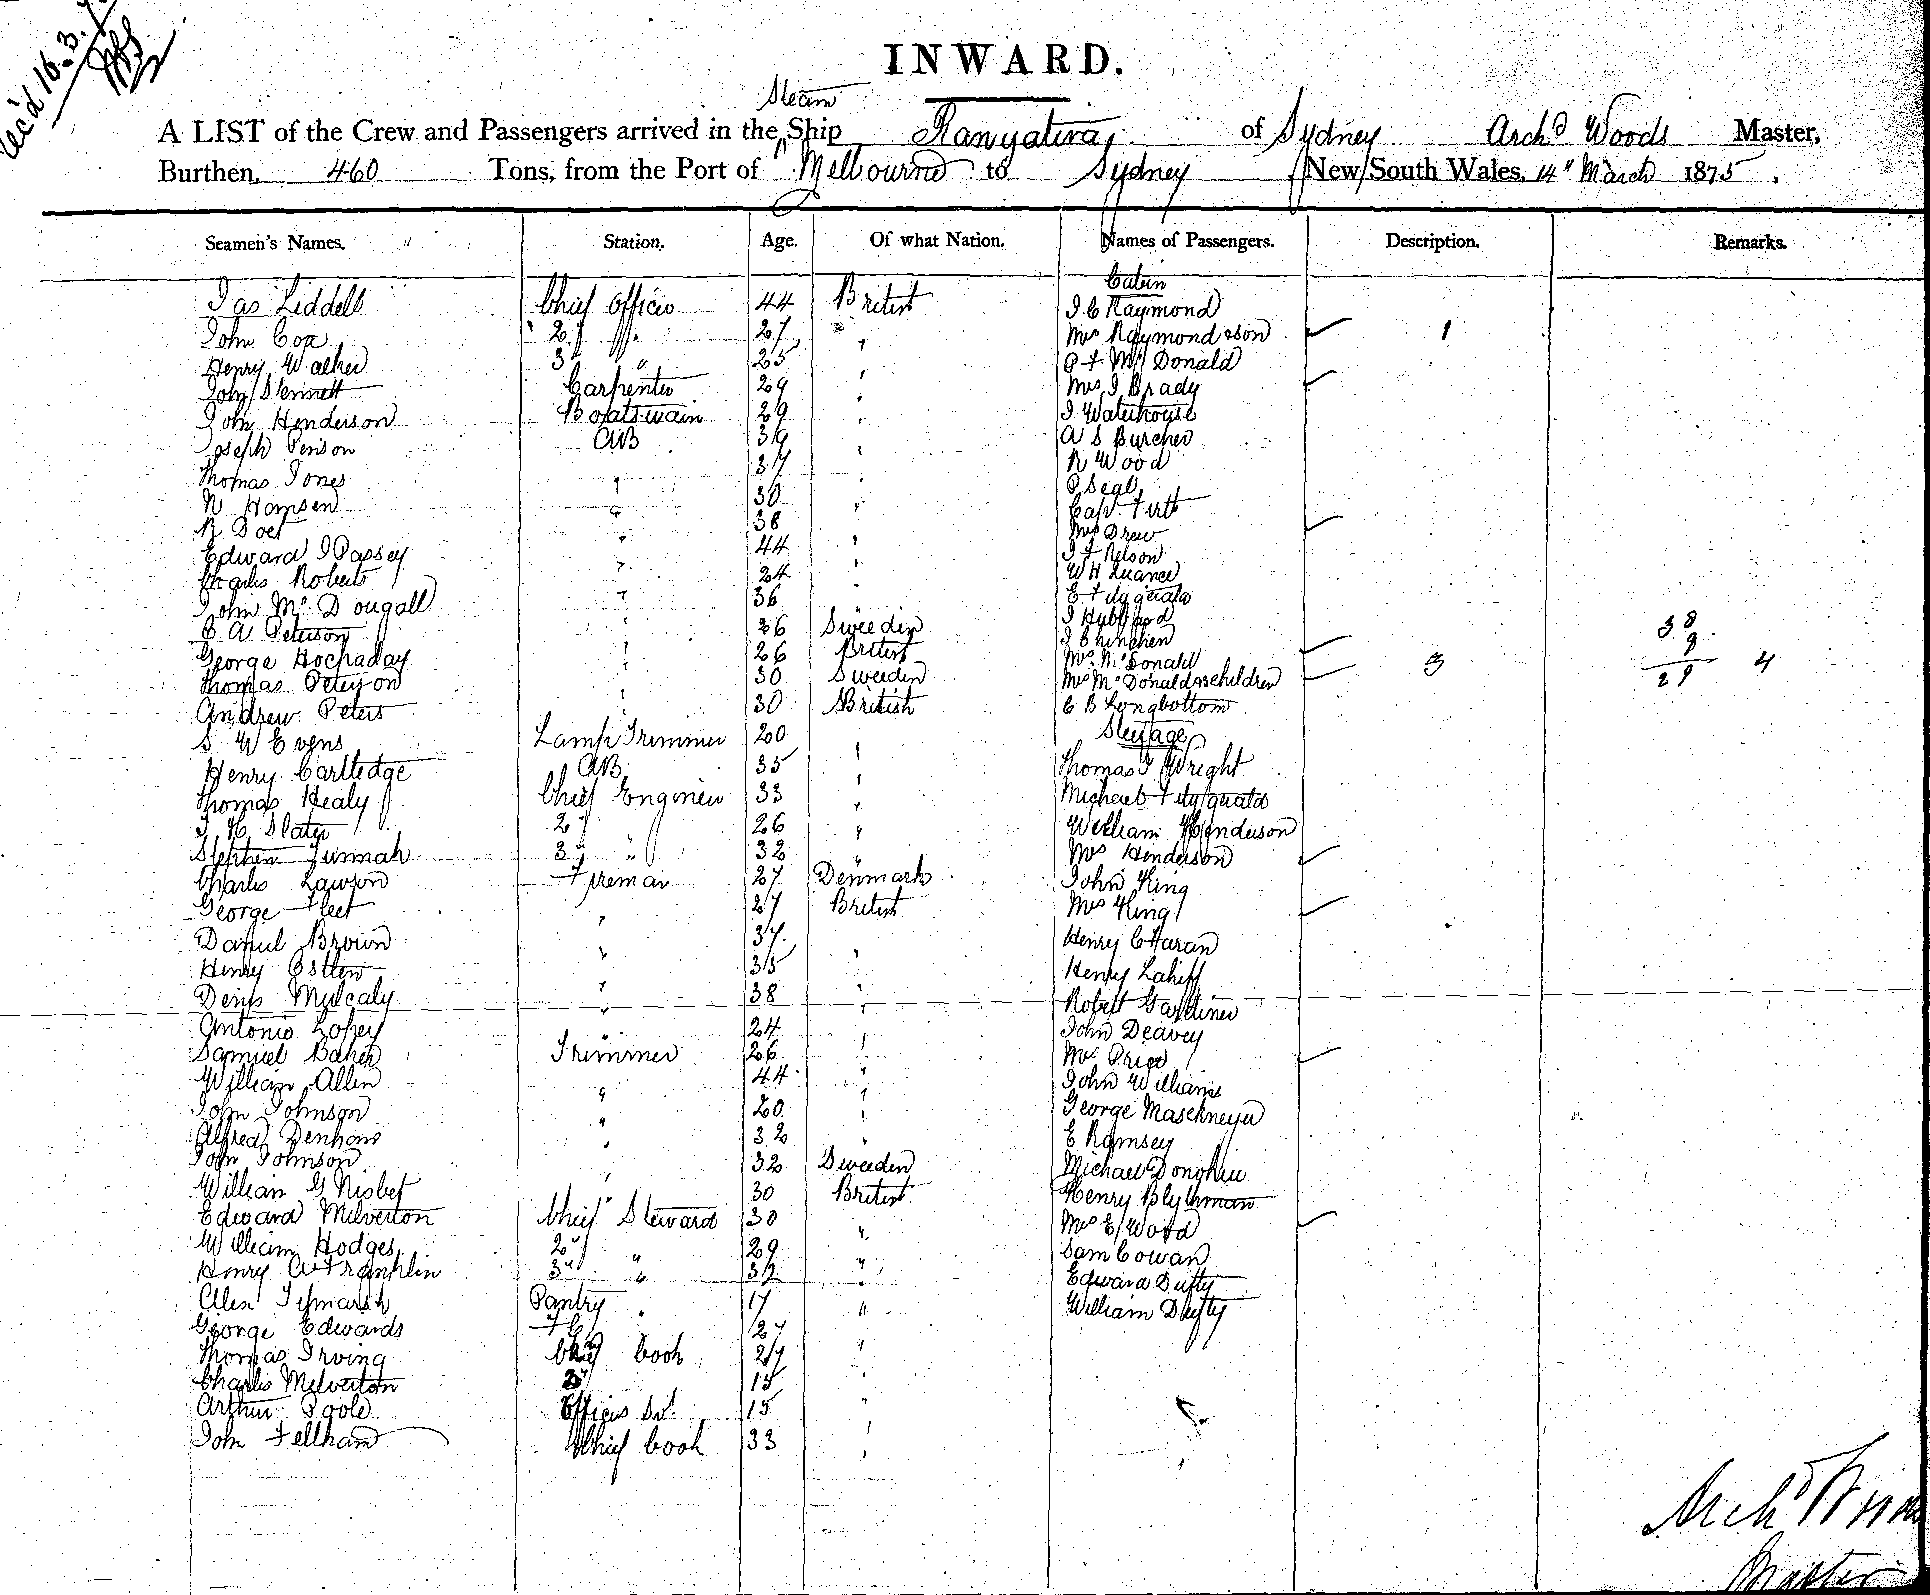 Rec'd 16.3.
INWARD.
Steam
A LIST of the Crew and Passengers arrived in the Ship Rangatira of Sydney Archd Woods Master,
Burthen, 460 Tons, from the Port of Melbourne to Sydney New South Wales, 14" March 1875.
Seamen's Names. Station. Age. Of what Nation. Names of Passengers. Description. Remarks.
Cabin
Jas Liddell Chief Officer 44 British J C Raymond
John Cox 2d " 27 " Mrs Raymond & son 1
Henry Walker 3d " 25 " McDonald
John Stennett Carpenter 29 " Mrs J Brady
John Henderson Boatswain 29 " J Waterhouse
Joseph Penson AB 39 " A S Burcher
Thomas Jones " 37 " R Wood
N Hansen " 30 " Segal
R Doel " 38 " Capt Firth
Mrs Drew
Edward J Passey " 44 " J F Nelson
Charles Roberts " 24 " W H Quance
John McDougall " 36 " E Fitzgerald
C A Peterson " 26 Sweeden J Hubbard
George Hockaday " 26 British Mrs McDonald
38
9
29 4
Thomas Peterson " 30 Sweeden Mrs McDonald & 3 children 3
Andrew Peters " 30 British C B Longbottom
S W Evens Lamp Trimmer 20 " Steerage
Henry Cartledge AB 35 " Thomas J Wright
Thomas Healy Chief Engineer 33 " Michael Fitzgerald
J H Slater 2d " 26 " William Henderson
Stephen Tunnah 3d " 32 " Mrs Henderson
Charles Lawson Fireman 27 Denmark John King
George Fleet " 27 British Mrs King
Daniel Brown " 37 " Henry O'Haran
Henry Ostler " 35 " Henry Lahiff
Denis Mulcaly " 38 " Robert Gardiner
Antonio Lopez " 24 " John Deavey
Samuel Baker Trimmer 26 " Mrs Price
William Allen " 44 " John Williams
John Johnson " 20 " George Maschmeyer
Alfred Denhons " 32 " E Ramsey
John Johnson " 32 Sweeden Michael Donoghue
William G Nisbet " 30 British Henry Blythman
Edward Milverton Chief Steward 30 " Mrs E Wood
William Hodges 2d " 29 " Sam Cowan
Henry A Franklin 3d " 32 " Edward Dufty
Allen Titmarsh Pantry " 17 " William Dufty
George Edwards 27 "
Thomas Irving Chief Cook 27 "
Charles Milverton 2d 15 "
Arthur Poole Officers Svt 15 "
John Fellham Chief Cook 33 "
Archd Woods
Master